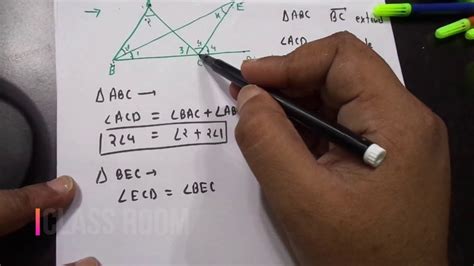 E
K
2
1
3
4
B
C
△ABC BC
∠ACD
△ABC →
∠ACD = ∠BAC + ∠AB
2∠4 = ∠2 + 2∠1
△BEC →
∠ECD = ∠BEC
CLASS ROOM